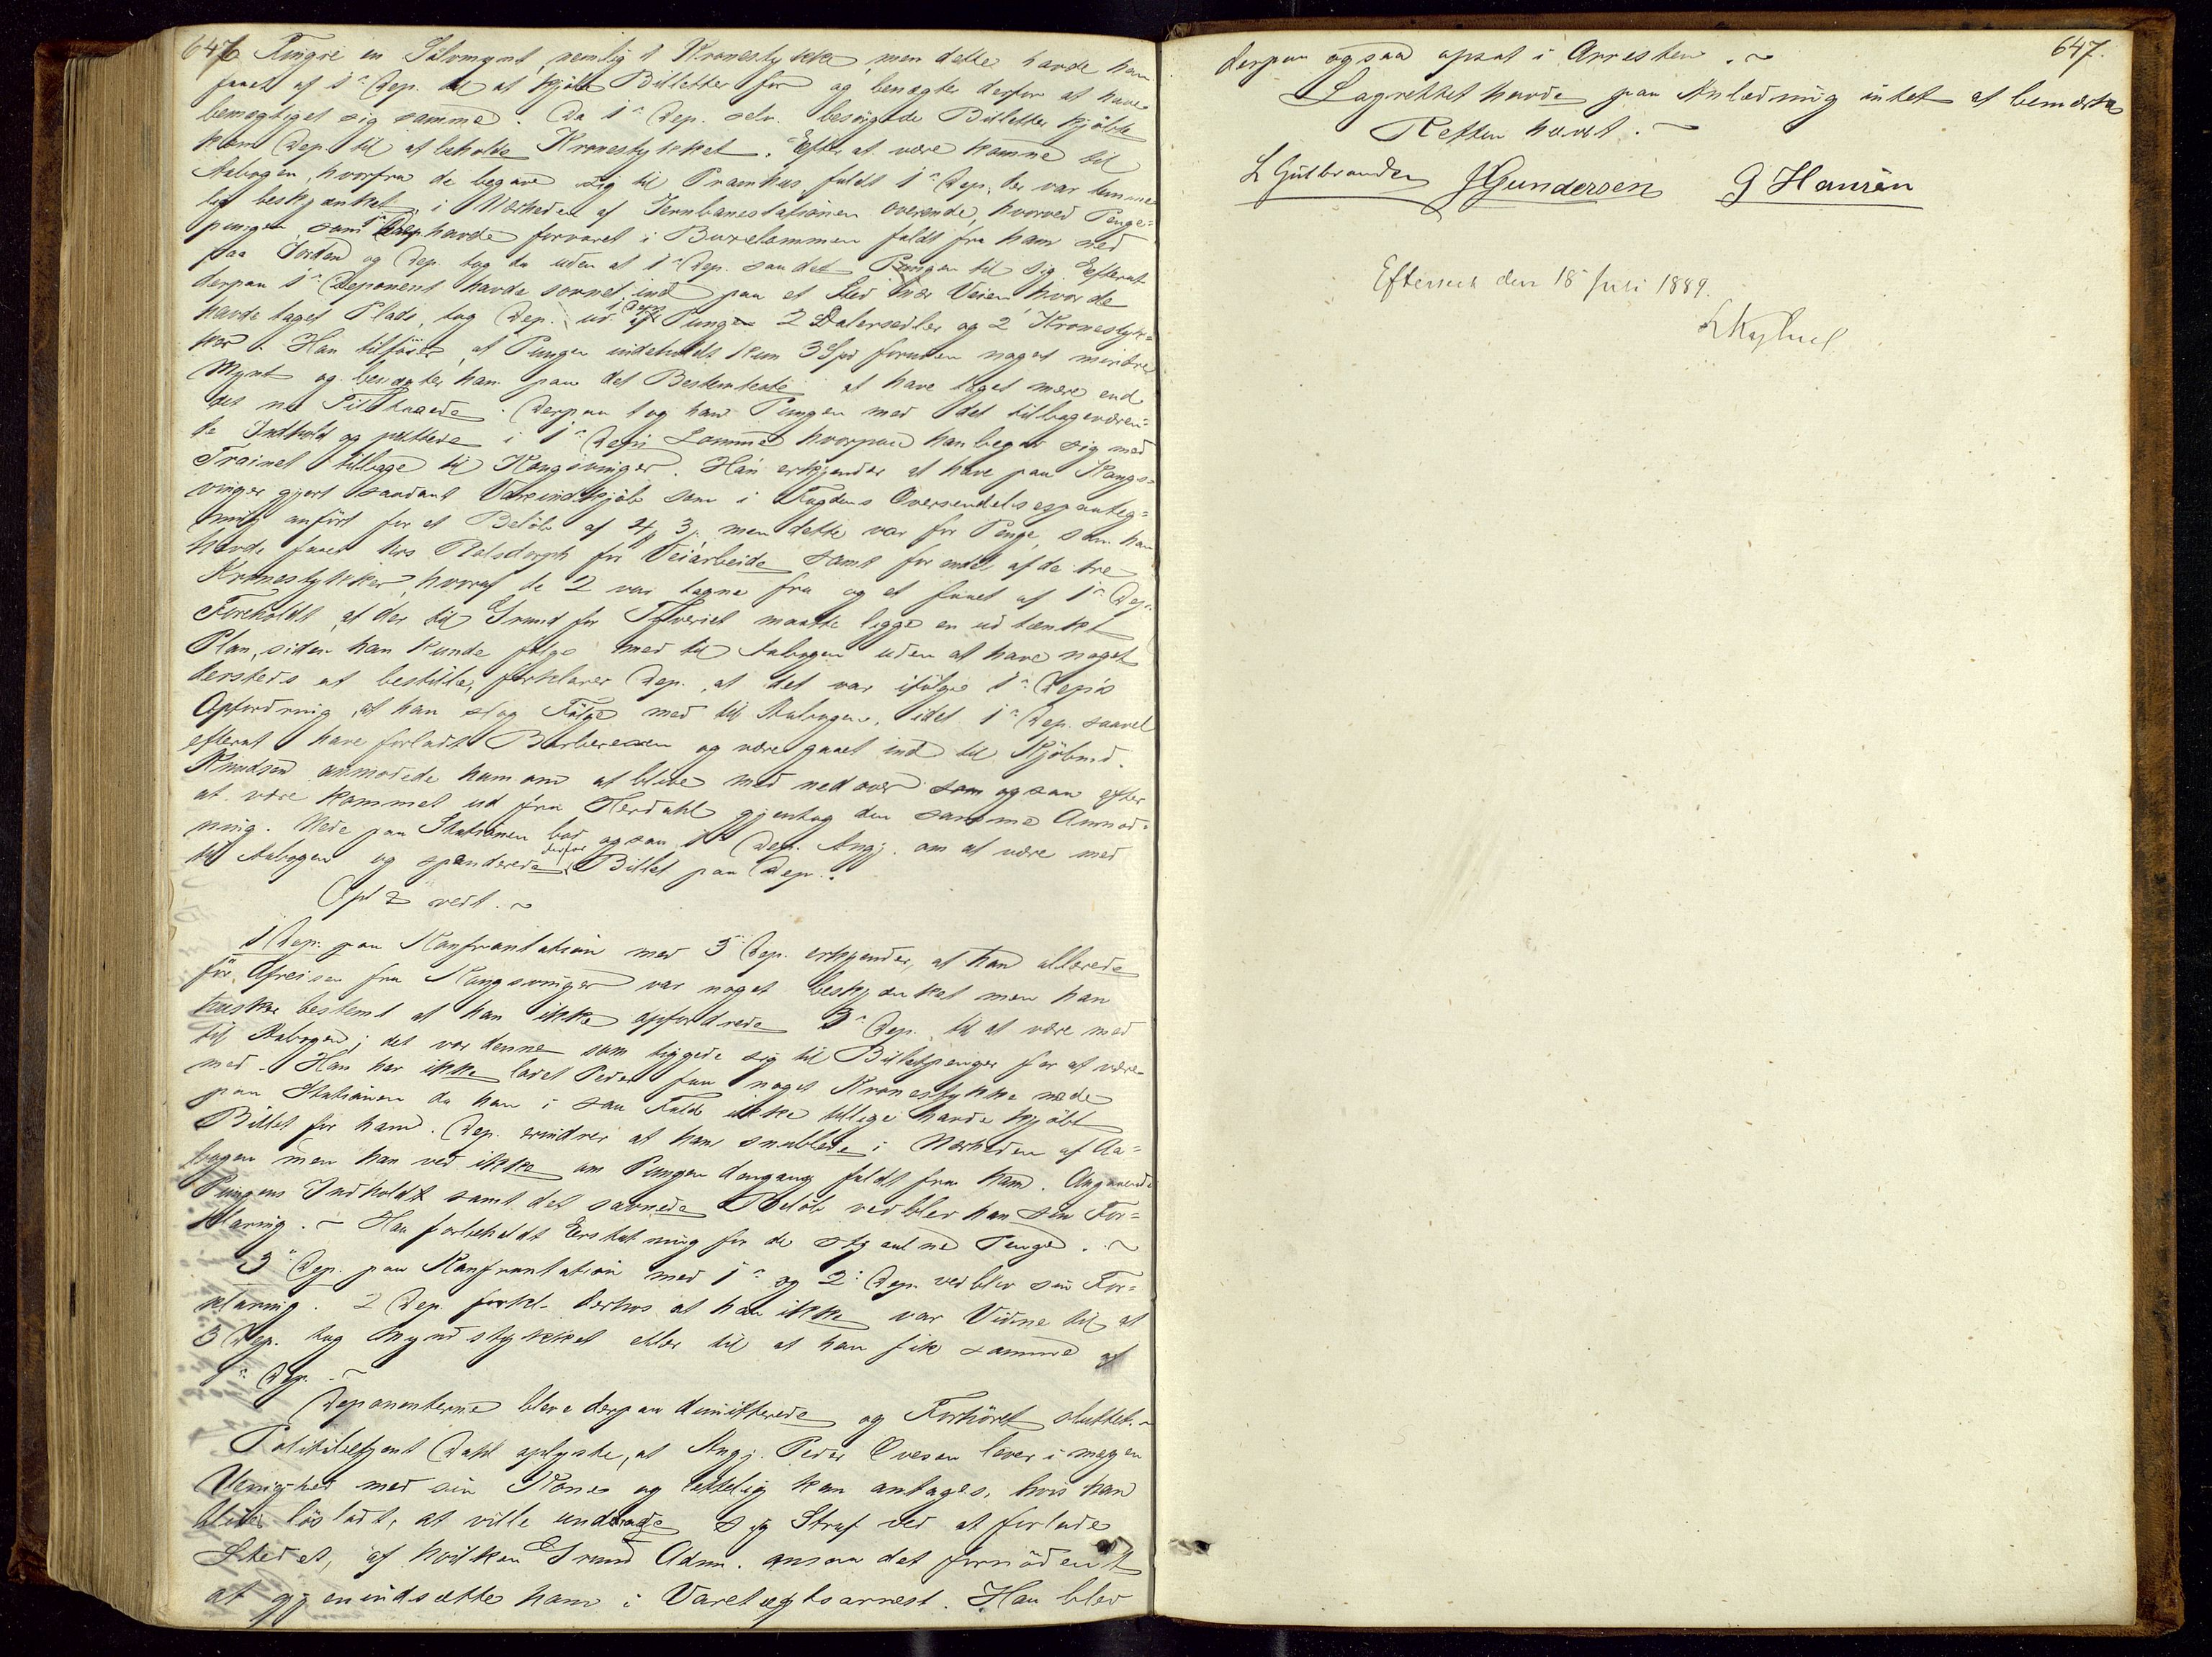 646 Fingre en Sølvmynt, nemlig 1 Kronestykke, men dette havde han
faaet af 1ste Dep. til at kjøbe Billetter for og benægter derfor at have
bemægtiget sig samme. Da 1ste Dep. selv besørgede Billetter kjøbte
kom Dep. til at beholde Kronestykket. Efter at være komne til
Aabogen, hvorfra de begave sig til Pramhus faldt 1ste Dep. der var temme-
lig beskjænket i Nærheden af Jernbanestationen overende, hvorved Penge=
pungen som Dep. havde forvaret i Buxelommen faldt fra ham ned
paa Jorden og Dep. tog da uden at 1ste Dep. saa det Pungen til sig. Efterat
derpaa 1ste Deponent havde sovnet ind paa et Sted nær Veien hvor de
havde taget Plads, tog Dep. ud af Pungen 2 Dalersedler og 2 Kronestyk=
ker. Han tilføier, at Pungen indeholdt kun 3 Spd foruden noget mindre
Mynt og benægter han paa det Bestemteste at have taget mere end
det nu Tilstaaede. Derpaa tog han Pungen med det tilbageværen=
de Indhold og puttede i 1ste Dep.s Lomme hvorpaa han begav sig med
Trainet tilbage til Kongsvinger. Han erkjender at have paa Kongs=
vinger gjort saadant Vareindkjøb som i Fogdens Oversendelsespaateg=
ning anført for et Beløb af 4 3 men dette var for Penge, som han
havde faaet hos Rolsdorph for Veiarbeide samt for endel af de tre
Kronestykker, hvoraf de 2 var tagne fra og et faaet af 1ste Dep.
Foreholdt at der til Grund for Tyveriet maatte ligge en udtænkt
Plan, siden han kunde følge med til Aabogen uden at have noget
dersteds at bestille, forklarer Dep., at det var ifølge 1ste Dep's
Opfordring at han slog Følge med til Aabogen, idet 1ste Dep. saavel
efterat have forladt Barberexen og være gaaet ind til Kjøbmd.
Knudsen anmodede ham om at blive med nedover som ogsaa efter
at være kommet ud fra Herdahl gjentog den samme Anmod=
ning. Nede paa Stationen bad ogsaa 1ste Dep. Angj. om at være med
til Aabogen og spenderede derfor Billet paa Dep..
Opl & vedt. ~
1 Dep. paa Konfrontation med 3 Dep. erkjender, at han allerede
før Afreisen fra Kongsvinger var noget beskjænket men han
husker bestemt at han ikke opfordrede 3die Dep. til at være med
til Aabogen; det var denne som tiggede sig til Billetpenge for at være
med. Han har ikke ladet Peder faa noget Kronestykke nede
paa Stationen da han i saa Fald ikke tillige havde kjøbt
Billet for ham. Dep. erindrer at han snublede i Nærheden af Aa=
bogen men han ved ikke om Pungen dengang faldt fra ham. Angaaende
Pungens Indhold samt det savnede Beløb vedblev han sin For=
klaring. ~ Han forbeholdt Erstatning for de stjaalne Penge. ~
3 Dep. paa Konfrontation med 1ste og 2 Dep. vedblev sin For=
klaring. 2 Dep. forkl. derhos at han ikke var Vidne til at
3 Dep. tog Myndstykket eller til at han fik samme af
1ste Dep. ~
Deponenterne bleve derpaa dimitterede og Forhøret sluttet. ~
Politibetjent Dahl oplyste, at Angj. Peder Ovesen lever i megen
Uenighed med sin Kone og lettelig kan antages, hvis han
blive løsladt, at ville unddrage sig Straf ved at forlade
Stedet, af hvilken Grund Adm. ansaa det fornødent
at gjenindsætte ham i Varetægtsarrest. Han blev
647.
derpaa ogsaa opsat i Arresten. ~
Lagrettet havde paa Anledning intet at bemærke
Retten hævet. ~
L Gulbrandsen J Gundersen G Hansen
Efterseet den 18 Juli 1889.